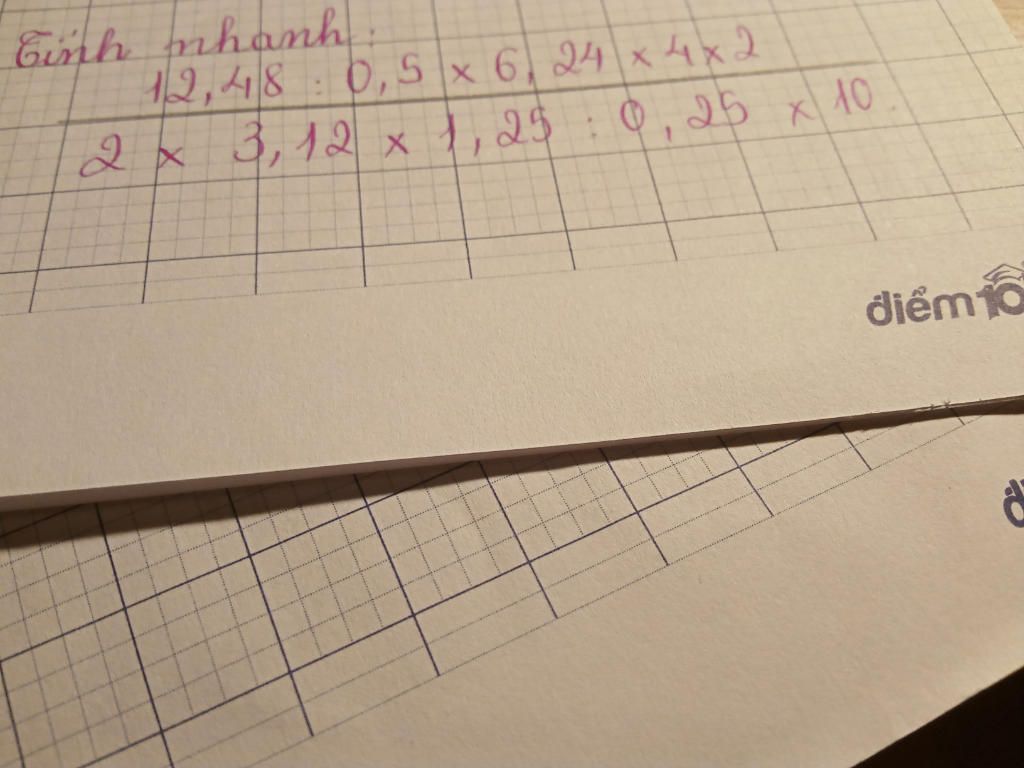 Tính nhanh:
12,48 : 0,5 x 6,24 x 4 x 2
2 x 3,12 x 1,25 : 0,25 x 10.
điểm 10